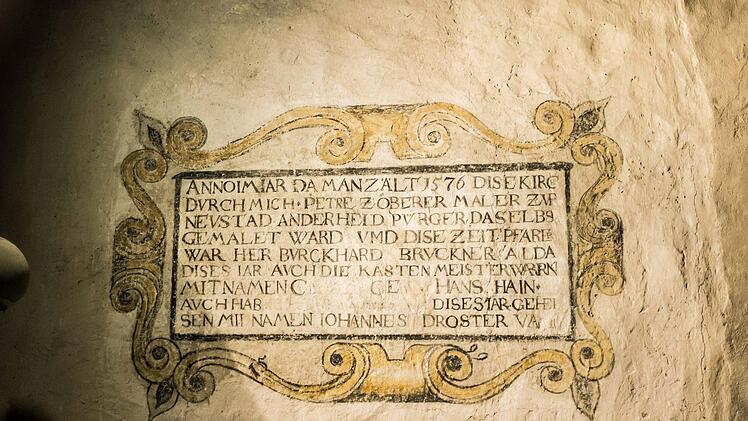 ANNO IM IAR DA MAN ZALT 1576 DISE KIRC
DVRCH MICH · PETRE ZOBERER MALER ZVR
NEVSTAD AN DER HEID PVRGER DASELBS
GEMALET WARD VMD DISE ZEIT PFARH
WAR HER BVRCKHARD BRVCKNER ALDA
DISES IAR AUCH DIE KASTEN MEISTER WARN
MIT NAMEN C GE HANS HAIN ·
AVCH HAB DISES IAR GEHEI
SEN MIT NAMEN IOHANNES DROSTER VA